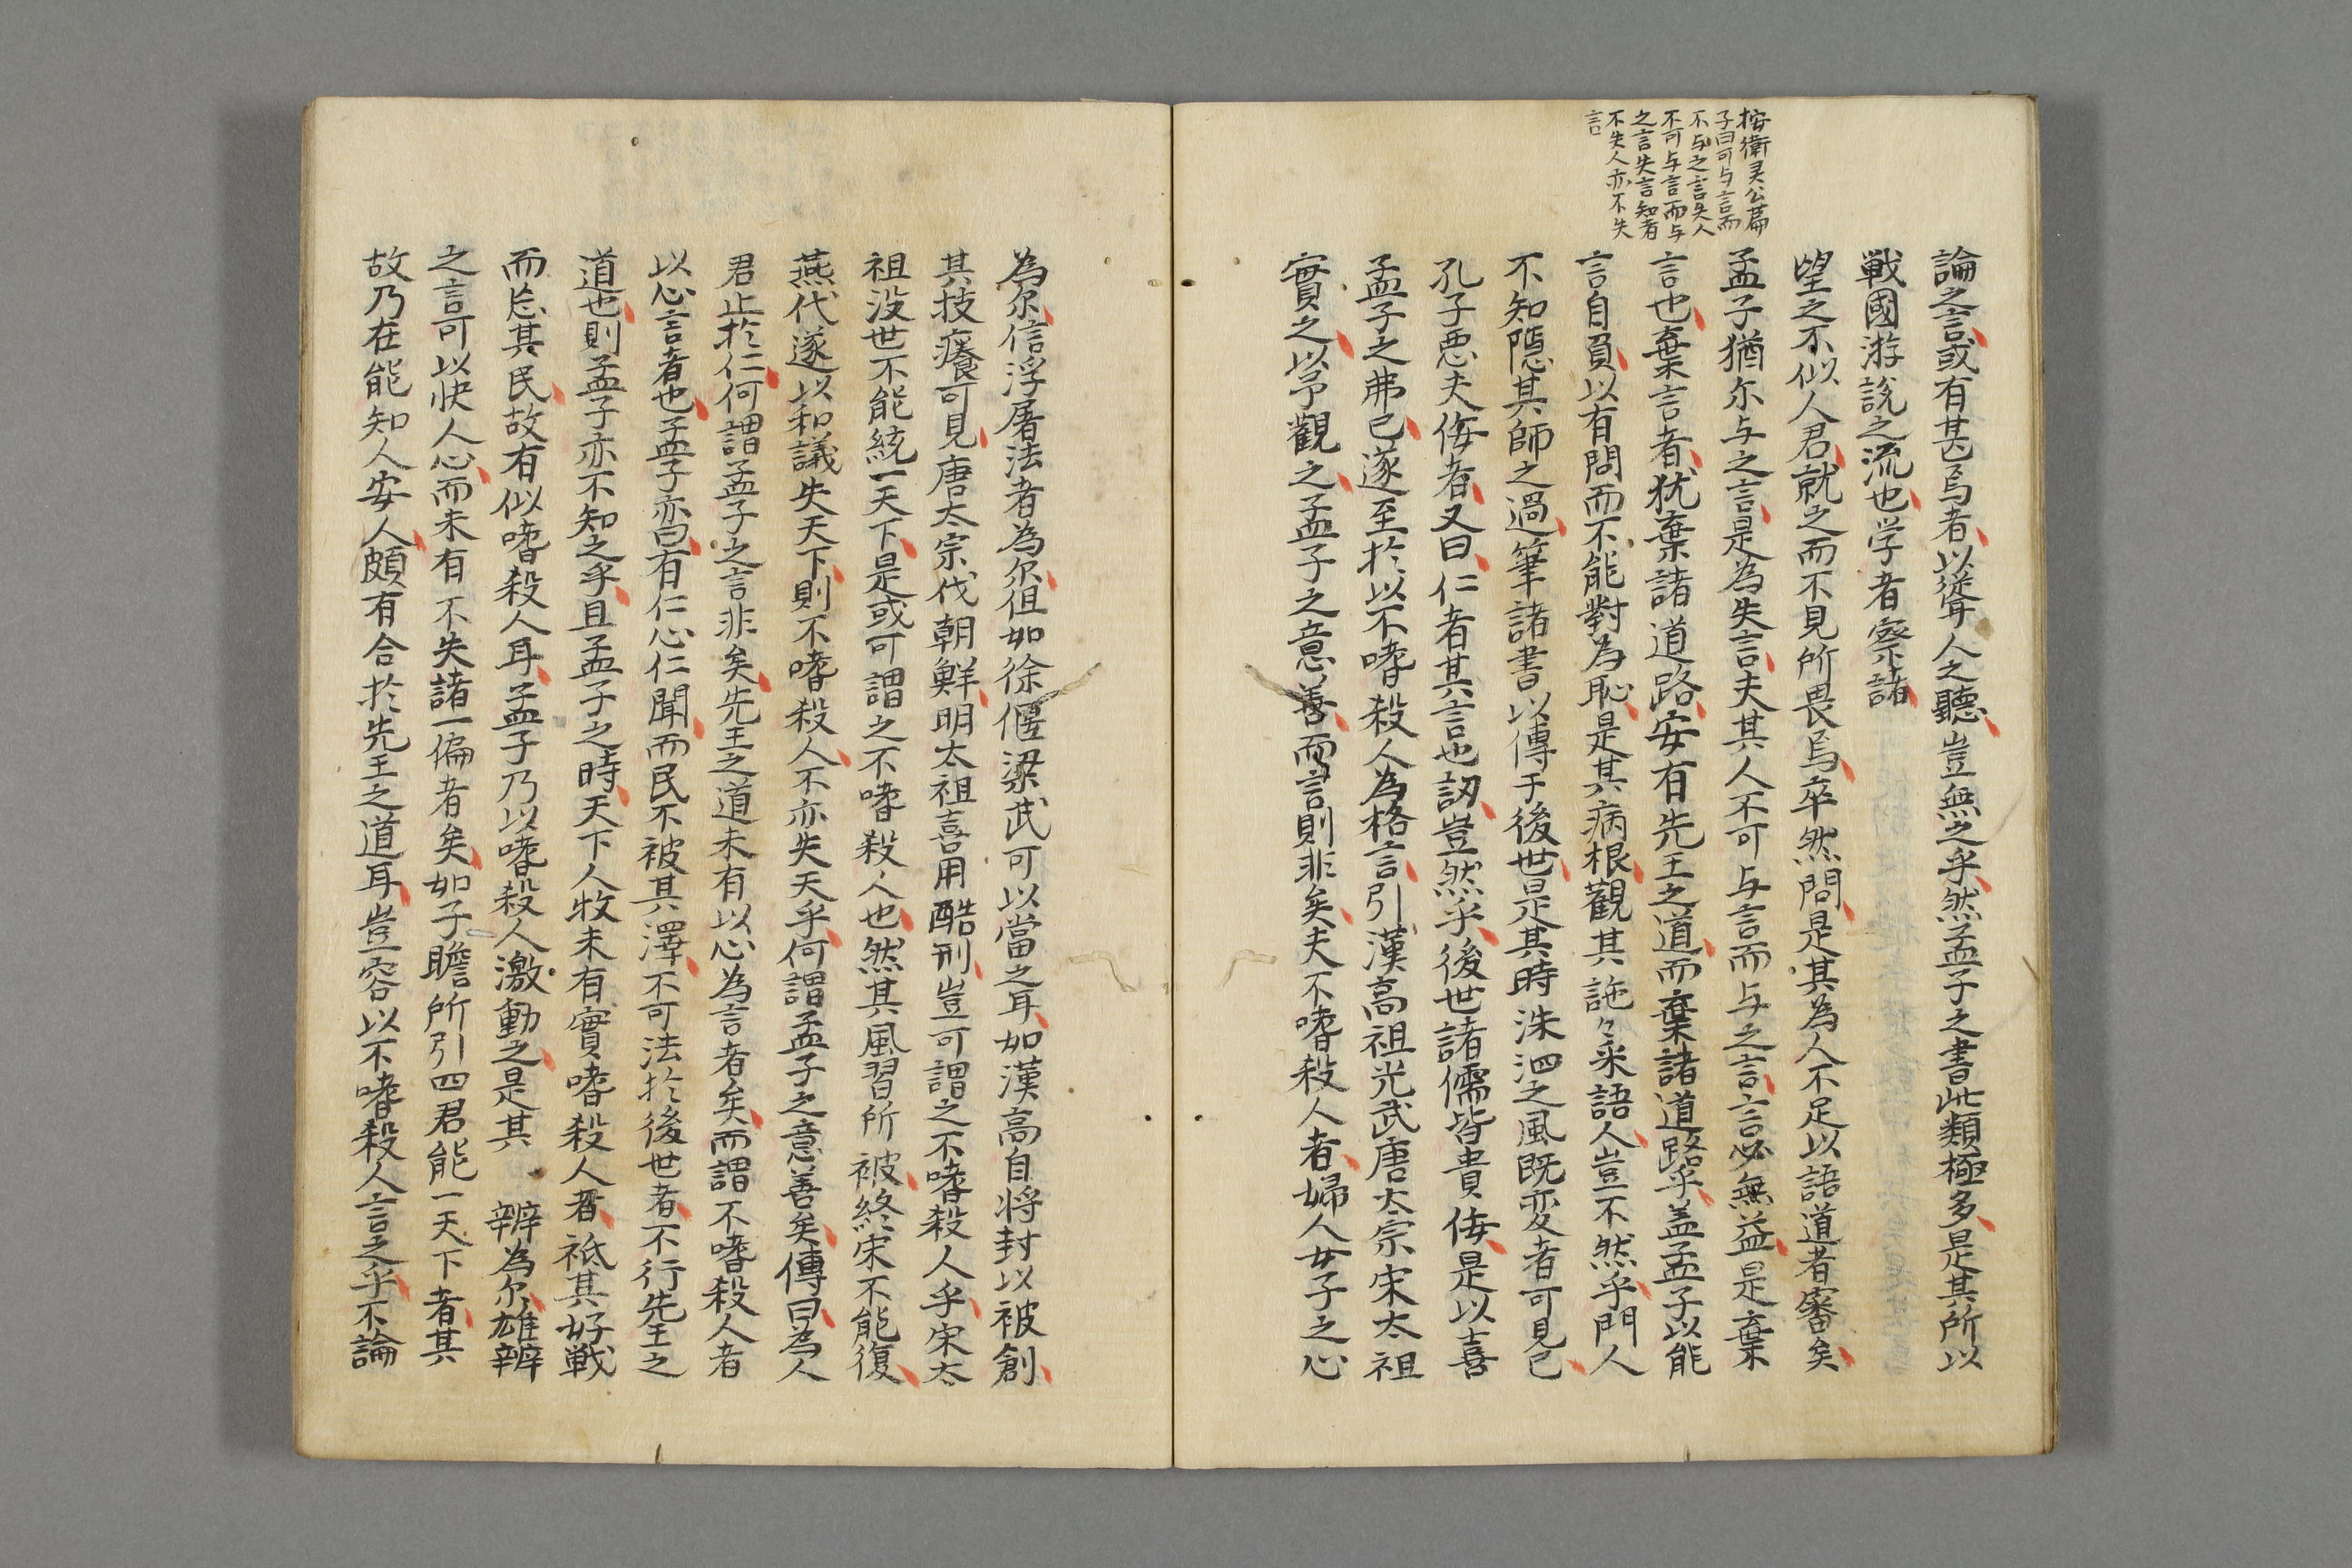 按衛灵公篇
子曰可与言而
不与之言失人
不可与言而与
之言失言知者
不失人亦不失
言
論之言或有甚焉者以聳人之聽豈無之乎然孟子之書此類極多是其所以
戦國游説之流也学者察諸
望之不似人君就之而不見所畏焉卒然問是其為人不足以語道者審矣
孟子猶尓与之言是為失言夫其人不可与言而与之言言必無益是棄
言也棄言者犹棄諸道路安有先王之道而棄諸道路乎盖孟子以能
言自負以有問而不能對為恥是其病根觀其訑々来語人豈不然乎門人
不知隠其師之過筆諸書以傳于後世是其時洙泗之風既変者可見已
孔子悪夫侫者又曰仁者其言也訒豈然乎後世諸儒皆貴侫是以喜
孟子之弗已遂至於以不嗜殺人為格言引漢高祖光武唐太宗宋太祖
實之以予觀之孟子之意善而言則非矣夫不嗜殺人者婦人女子之心
為尓信浮屠法者為尓但如徐偃梁武可以當之耳如漢高自将封以被創
其技癢可見唐太宗伐朝鮮明太祖喜用酷刑豈可謂之不嗜殺人乎宋太
祖没世不能統一天下是或可謂之不嗜殺人也然其風習所被終宋不能復
燕代遂以和議失天下則不嗜殺人不亦失天乎何謂孟子之意善矣傳曰為人
君止於仁何謂孟子之言非矣先王之道未有以心為言者矣而謂不嗜殺人者
以心言者也孟子亦曰有仁心仁聞而民不被其澤不可法於後世者不行先王之
道也則孟子亦不知之乎且孟子之時天下人牧未有實嗜殺人者祗其好戦
而忘其民故有似嗜殺人耳孟子乃以嗜殺人激動之是其 辨為尓雄辨
之言可以快人心而未有不失諸一偏者矣如子瞻所引四君能一天下者其
故乃在能知人安人頗有合於先王之道耳豈容以不嗜殺人言之乎不論